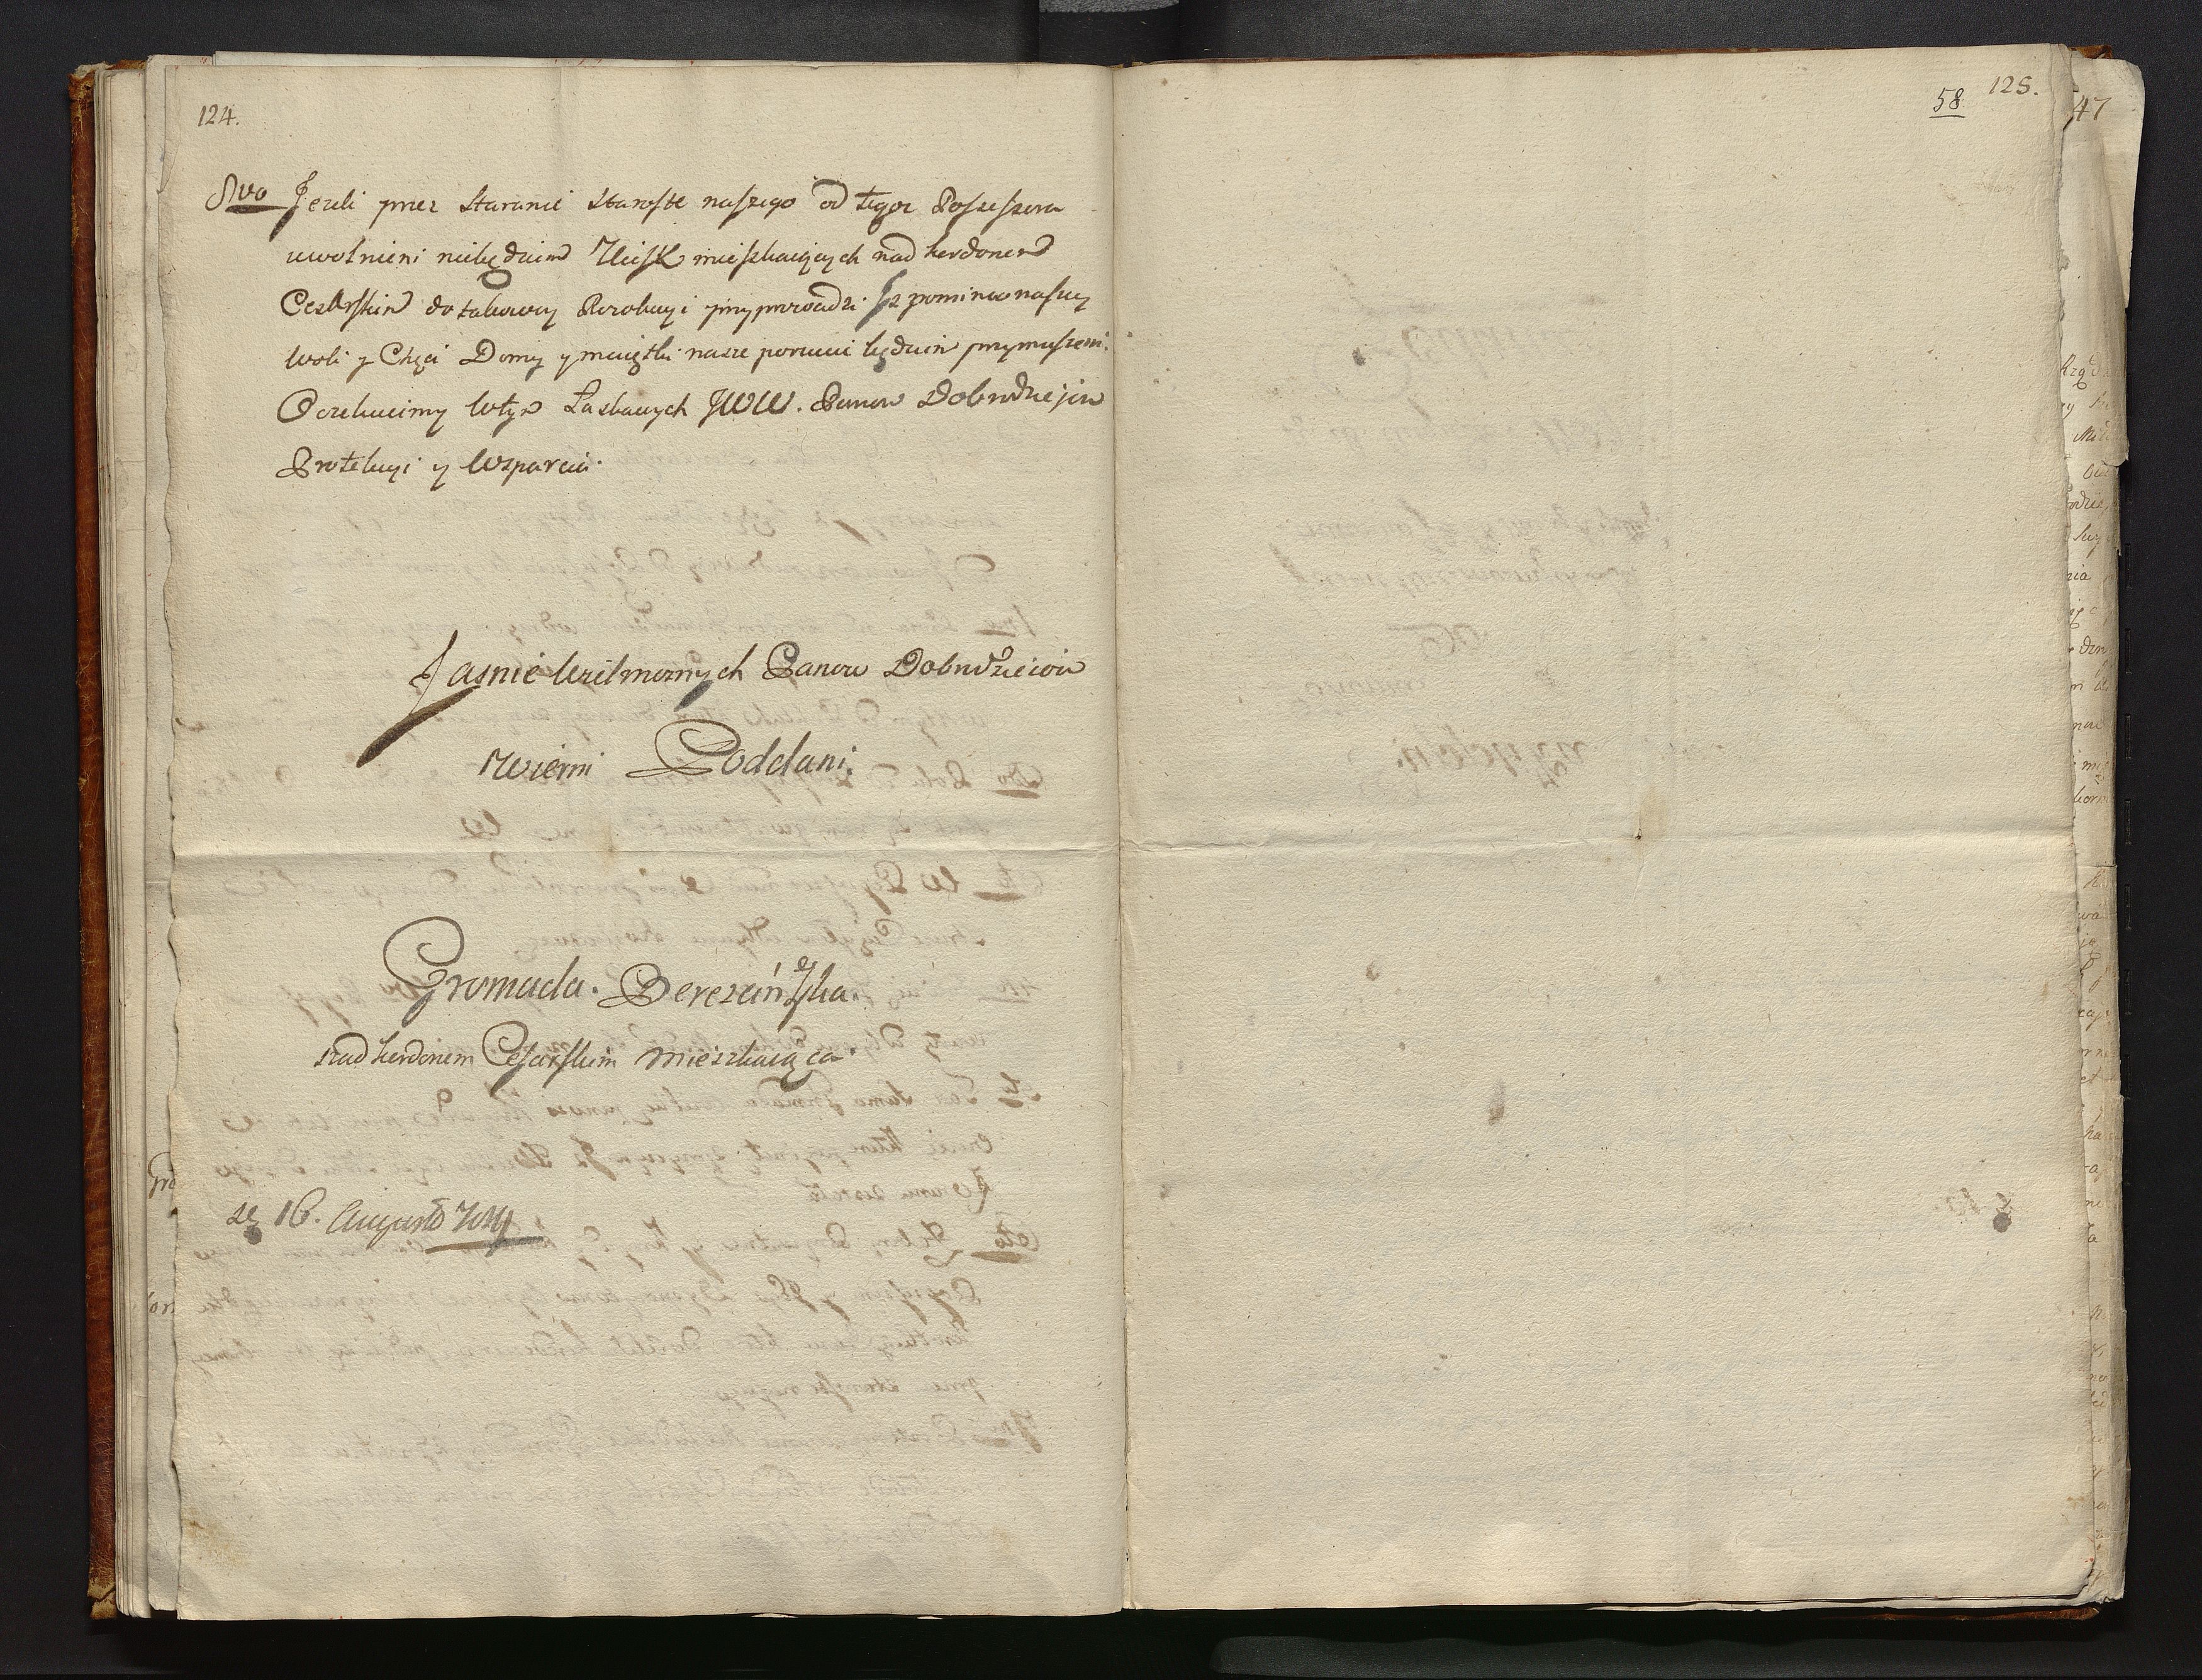 124.
8vo Jezeli przez staranie Staroste naszego od tegoz Possessora
uwolnieni niebędziem Ucisk mieszkaiących nad kordonem
Cesarskim do takowey przyprowadzi Iz pomimo naszey
woli y Chęci Domy y maiątki nasze porzucic będziem przymuszeni.
Oczekuiemy wtym Łaskawych JWW. Panow Dobrodzieiow
Protekcyi y Wsparcia.
Jasnie Wielmoznych Panow Dobrodzieiow
Wierni Poddani.
Gromada. Derezańska
nad kordonem Cesarskim mieszkaiąca.
16. Augusti
58 125.
47